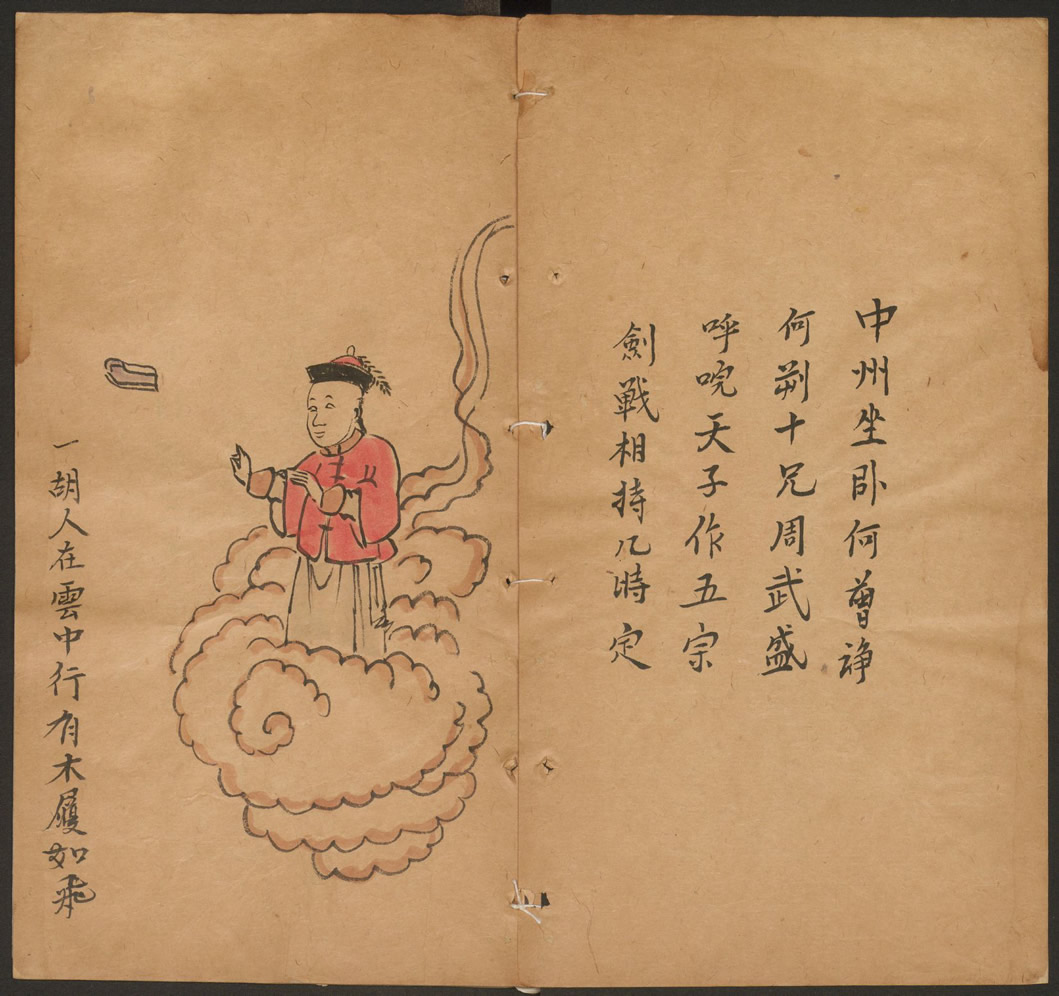 中州坐卧何曾諍
何朔十兄周武盛
呼唍天子作五宗
劍戰相持几時定
一胡人在雲中行有木履如飛